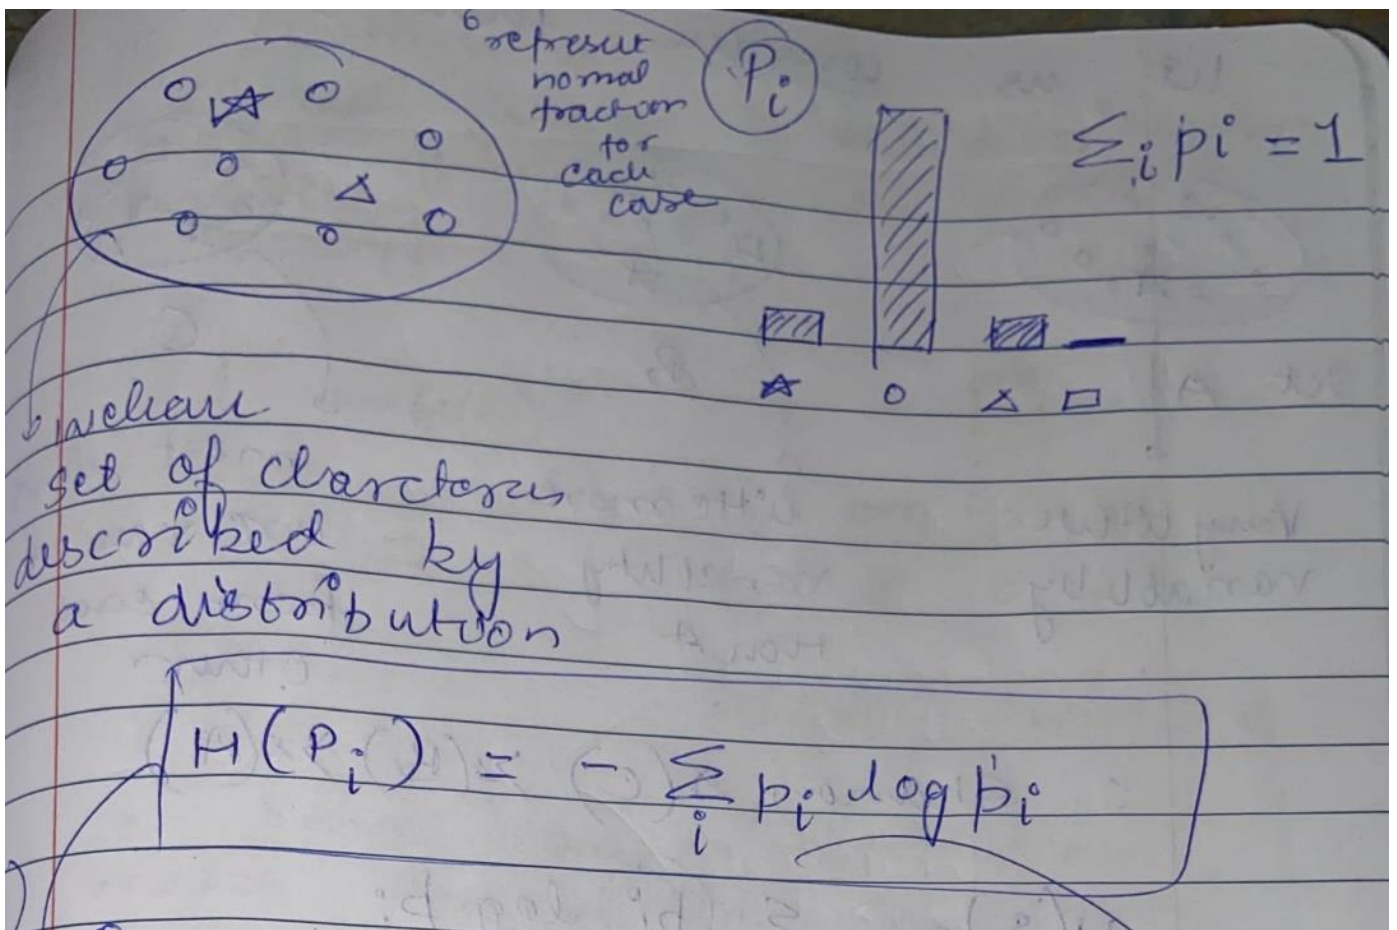 represent
nomal
fraction
for
each
case
Pi
Σi pi = 1
set of charcters
described by
a distribution
H(Pi) = - Σi pi log pi